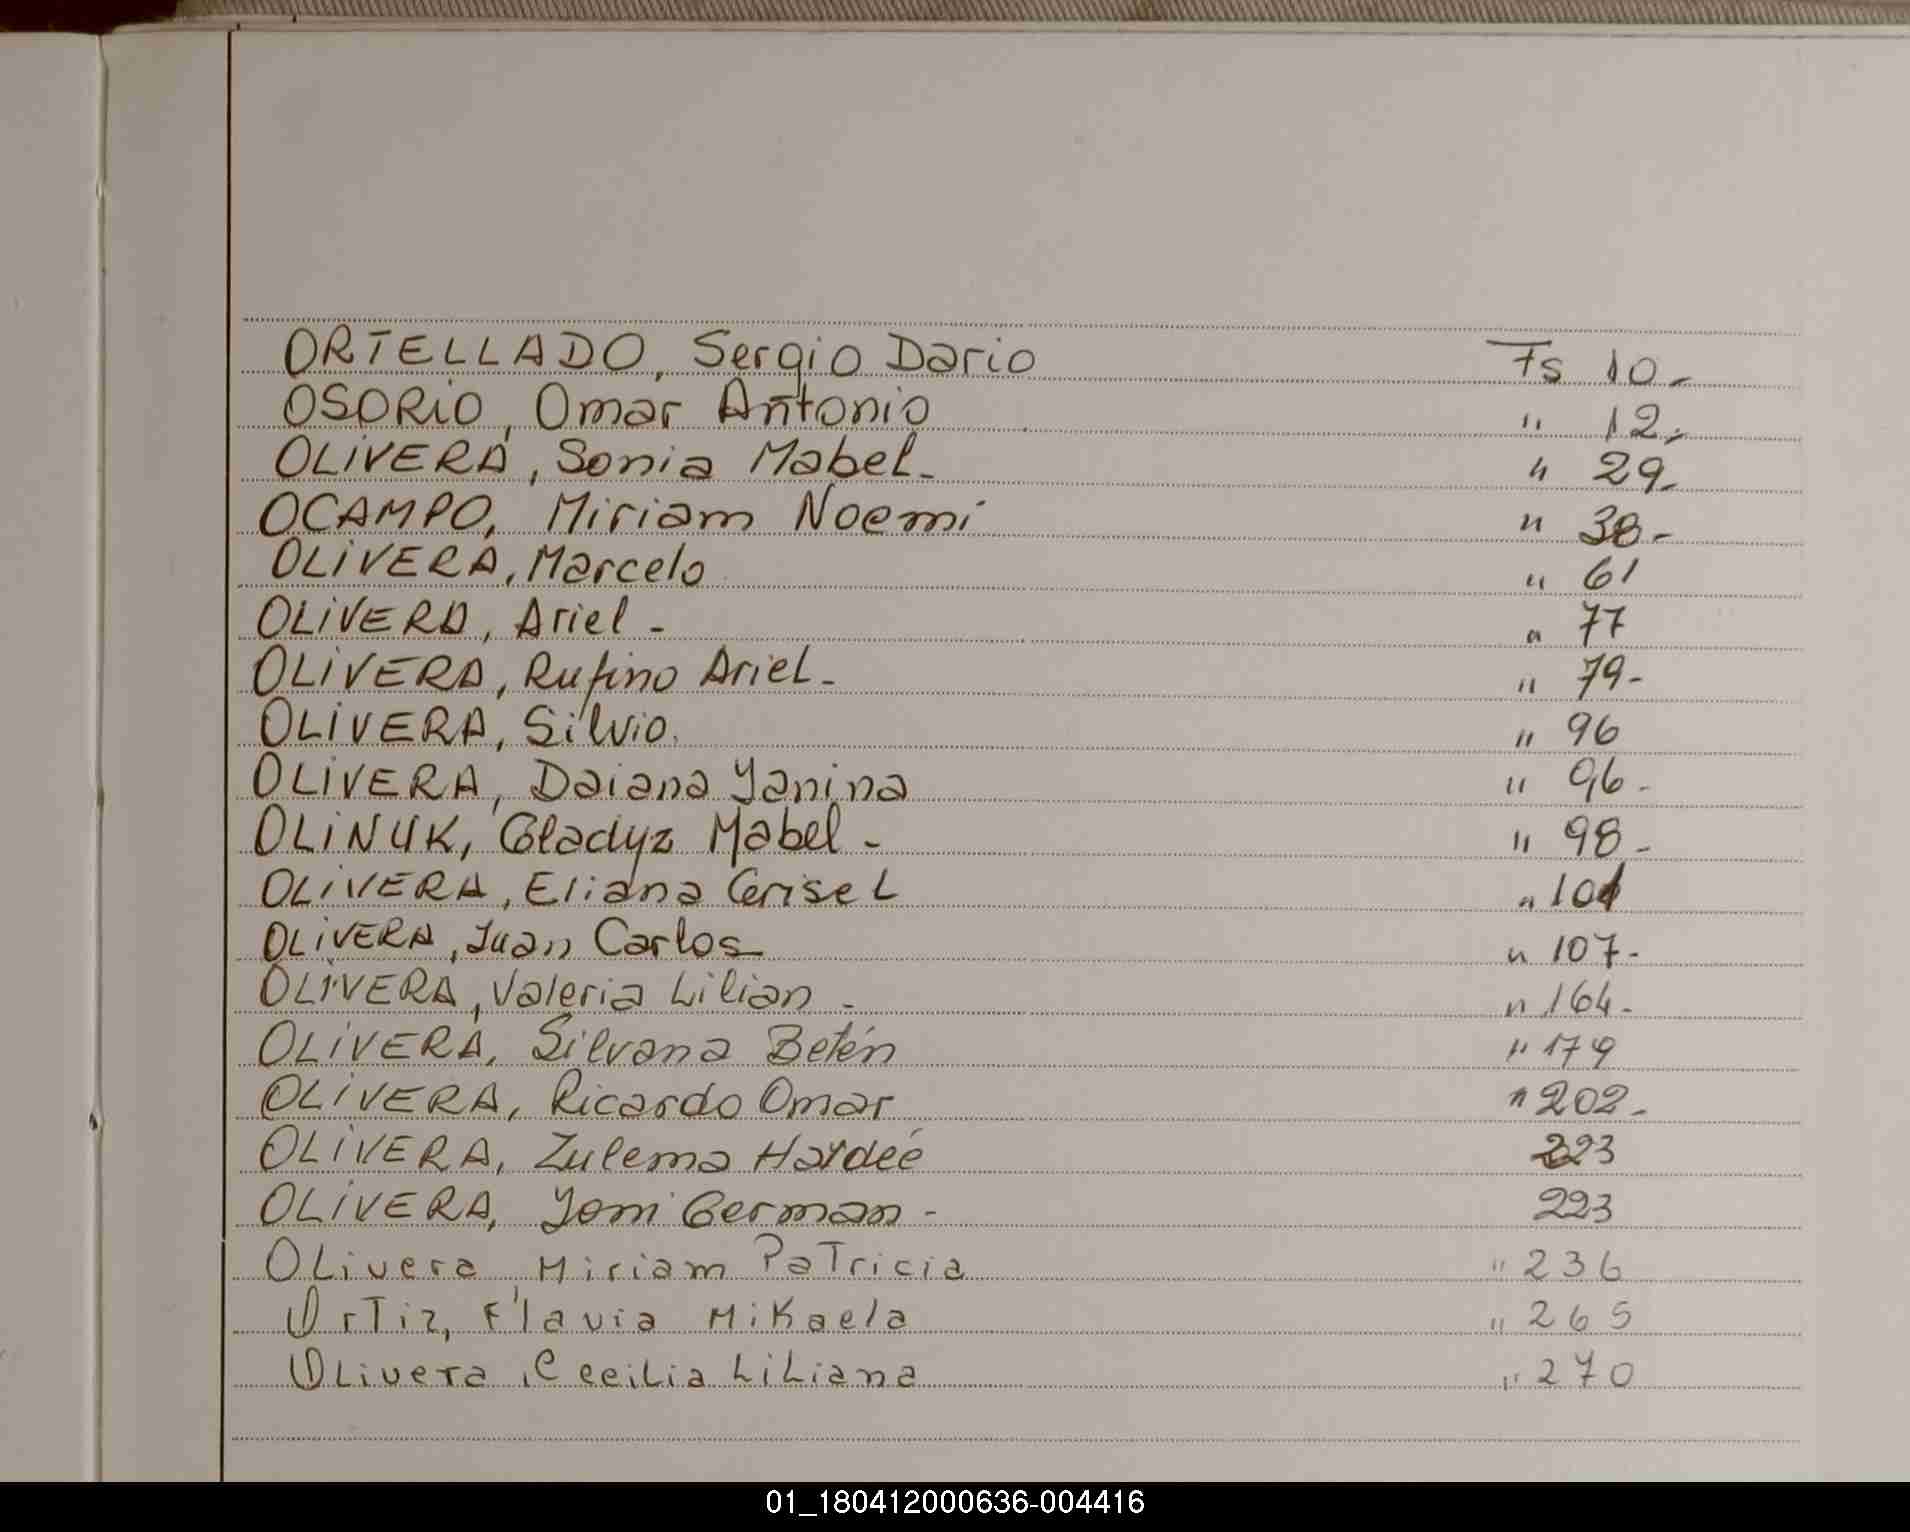 ORTELLADO, Sergio Dario Fs 10-
OSORIO, Omar Antonio " 12-
OLIVERA, Sonia Mabel- " 29-
OCAMPO, Miriam Noemí " 38-
OLIVERA, Marcelo " 61
OLIVERA, Ariel - " 77
OLIVERA, Rufino Ariel- " 79-
OLIVERA, Silvio. " 96
OLIVERA, Daiana Yanina " 96-
OLINUK, Gladyz Mabel - " 98-
OLIVERA, Eliana Grisel " 101
OLIVERA, Juan Carlos " 107-
OLIVERA, Valeria Lilian - " 164-
OLIVERA, Silvana Belén " 179
OLIVERA, Ricardo Omar " 202-
OLIVERA, Zulema Haydeé 223
OLIVERA, Yoni German - 223
OLivera, Miriam PaTricia " 236
OrTiz, Flavia MiKaela " 265
OLivera, Cecilia LiLiana " 270
01_180412000636-004416